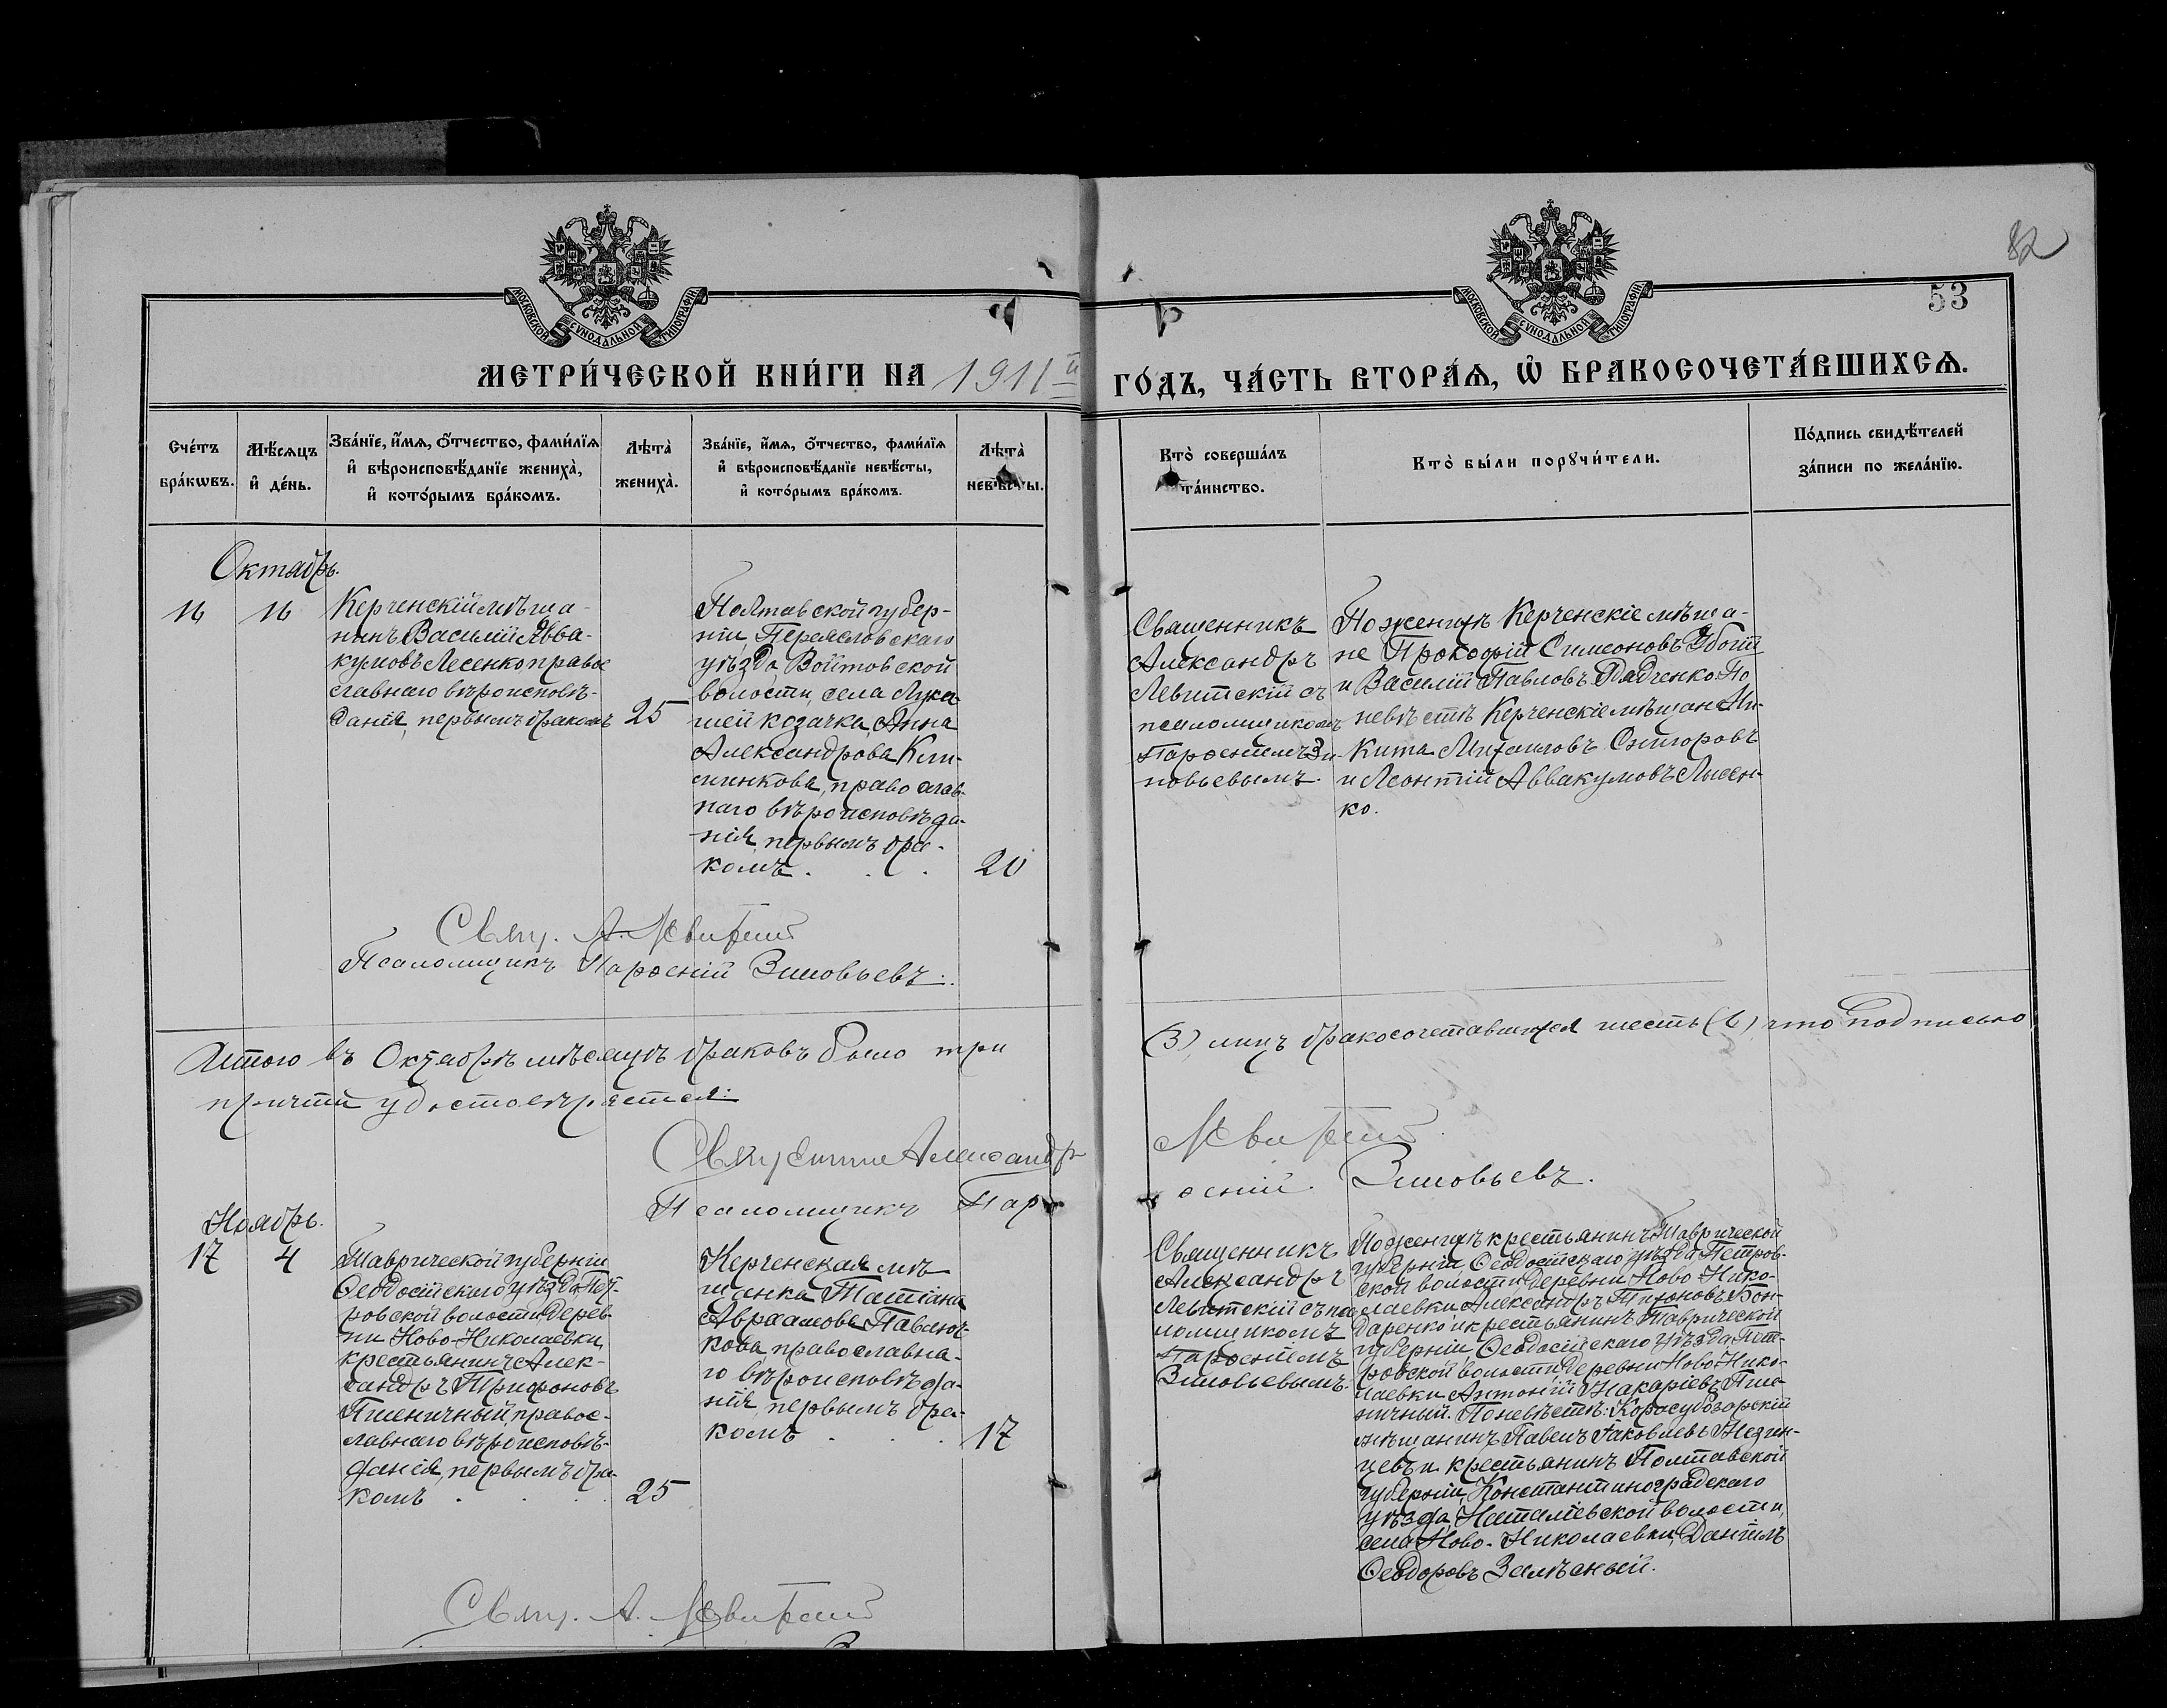 82
53
МОСКОВСКОЙ СѴНОДАЛЬНОЙ ТИПОГРАФІИ
МОСКОВСКОЙ СѴНОДАЛЬНОЙ ТИПОГРАФІИ
МЕТРИ́ЧЕСКОЙ КНИ́ГИ НА 1911й
ГО́ДЪ, ЧА́СТЬ ВТОРА́Ѧ, Ѡ҆ БРАКОСОЧЕТА́ВШИХСѦ.
Сче́тъ бра́кѡвъ.
Мѣ́сѧцъ и҆ де́нь.
Зва́нїе, и҆́мѧ, ѻ҆́тчество, фами́лїѧ
и҆ вѣроисповѣ́данїе жениха̀,
и҆ кото́рымъ бра́комъ.
Лѣта̀ жениха̀.
Зва́нїе, и҆́мѧ, ѻ҆́тчество, фами́лїѧ
и҆ вѣроисповѣ́данїе невѣ́сты,
и҆ кото́рымъ бра́комъ.
Лѣта̀ невѣ́сты.
Кто̀ соверша́лъ та́инство.
Кто̀ бы́ли порꙋчи́тели.
По́дпись свидѣ́телей
за́писи по жела́нїю.
Октябрь.
16
16
Керченскій мѣща-
нинъ Василій Авва-
кумовъ Лесенко, право
славнаго вѣроисповѣ-
данія, первымъ бракомъ
25
Полтавской губер-
ніи, Переяславскаго
уѣзда, Войтовской
волости, села Лука
шей козачка Анна
Александрова Кли-
менкова, православ-
наго вѣроисповѣда-
нія, первымъ бра-
комъ
20
Священникъ
Александръ
Левитскій съ
псаломщикомъ
Парѳеніемъ Зи-
новьевымъ.
По женихѣ Керченскіе мѣща-
не Прокофій Симеоновъ Убогій
и Василій Павловъ Радченко. По
невѣстѣ Керченскіе мѣщане Ни-
кита Михаиловъ
и Леонтій Аввакумовъ Лысен-
ко.
Свящ. А. Левитскій
Псаломщикъ Парѳеній Зиновьевъ.
Итого въ Октябрѣ мѣсяцѣ браковъ было три (3), лицъ бракосочетавшихся шесть (6), что подписью
причта удостовѣряется:
Священникъ Александръ Левитскій
Псаломщикъ Парѳеній Зиновьевъ.
Ноябрь.
17
4
Таврической губерніи
Ѳеодосійскаго уѣзда, Пет-
ровской волости, дерев-
ни Ново-Николаевки,
крестьянинъ Алек-
сандръ Трифоновъ
Пшеничный, правос-
лавнаго вѣроисповѣ-
данія, первымъ бра-
комъ
25
Керченская мѣ
щанка Татіана
Авраамова Павлюч-
кова, православна-
го вѣроисповѣда-
нія, первымъ бра-
комъ
17
Священникъ
Александръ
Левитскій съ пса
ломщикомъ
Парѳеніемъ
Зиновьевымъ.
По женихѣ крестьянинъ Таврической
губерніи Ѳеодосійскаго уѣзда Петров-
ской волости деревни Ново-Нико-
лаевки Александръ Тихоновъ Бон-
даренко и крестьянинъ Таврической
губерніи Ѳеодосійскаго уѣзда, Пет-
ровской волости, деревни Ново-Нико-
лаевки Антоній Макаріевъ Пше-
ничный. По невѣстѣ: Карасубазарскій
мѣщанинъ Павелъ Іаковлевъ
цевъ и крестьянинъ Полтавской
губерніи, Константиноградскаго
уѣзда, Наталіевской волости,
села Ново-Николаевки, Даніилъ
Ѳеодоровъ
Свящ. А. Левитскій